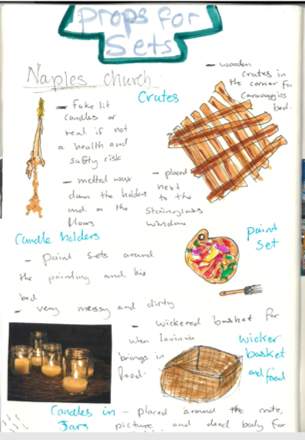 Props for
Sets
Naples Church
Crates
- wooden
crates in
the corner for
Caravaggios
bed.
- Fake lit
candles or
real if not
a health and
safety risk
- melted wax
down the holders
and on the
floors
- placed
next
to the
Stainglass
window
Candle holders
paint
set
- paint sets around
the painting and his
bed
- very messy and dirty
- wickered basket for
when Lavinia
brings in
food.
wicker
basket
and food
Candles in
Jars
- placed around the
picture and dead body for